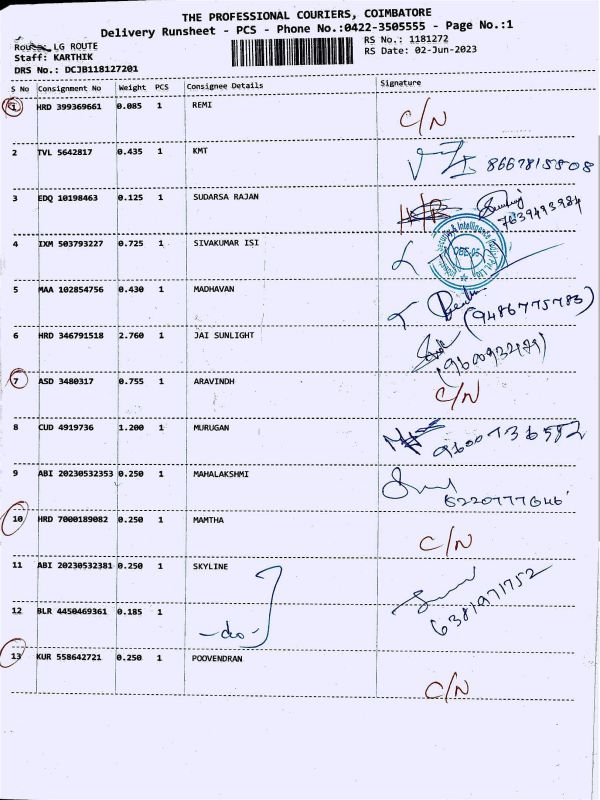 THE PROFESSIONAL COURIERS, COIMBATORE
Delivery Runsheet - PCS - Phone No.:0422-3505555 - Page No.:1
Route: LG ROUTE
RS No.: 1181272
Staff: KARTHIK
RS Date: 02-Jun-2023
DRS No.: DCJB118127201
S No Consignment No Weight PCS Consignee Details Signature
1 HRD 399369661 0.085 1 REMI C/N
2 TVL 5642817 0.435 1 KMT 8667815808
3 EDQ 10198463 0.125 1 SUDARSA RAJAN 7639493984
4 IXM 503793227 0.725 1 SIVAKUMAR ISI
5 MAA 102854756 0.430 1 MADHAVAN (9486775783)
6 HRD 346791518 2.760 1 JAI SUNLIGHT
7 ASD 3480317 0.755 1 ARAVINDH C/N
8 CUD 4919736 1.200 1 MURUGAN 9600736582
9 ABI 20230532353 0.250 1 MAHALAKSHMI
10 HRD 7000189082 0.250 1 MAMTHA C/N
11 ABI 20230532381 0.250 1 SKYLINE 6381971752
12 BLR 4450469361 0.185 1 -do-
13 KUR 558642721 0.250 1 POOVENDRAN C/N